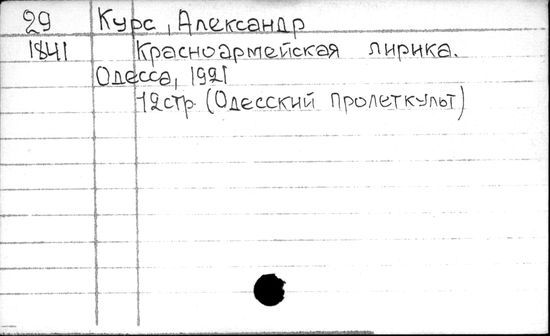 29 Курс, Александр
1841 Красноармейская лирика.
Одесса, 1921
12стр. (Одесский Пролеткульт)